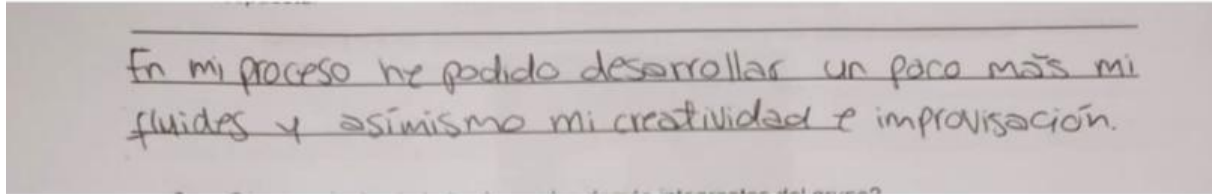 En mi proceso he podido desarrollar un poco más mi
fluides y asímismo mi creatividad e improvisación.